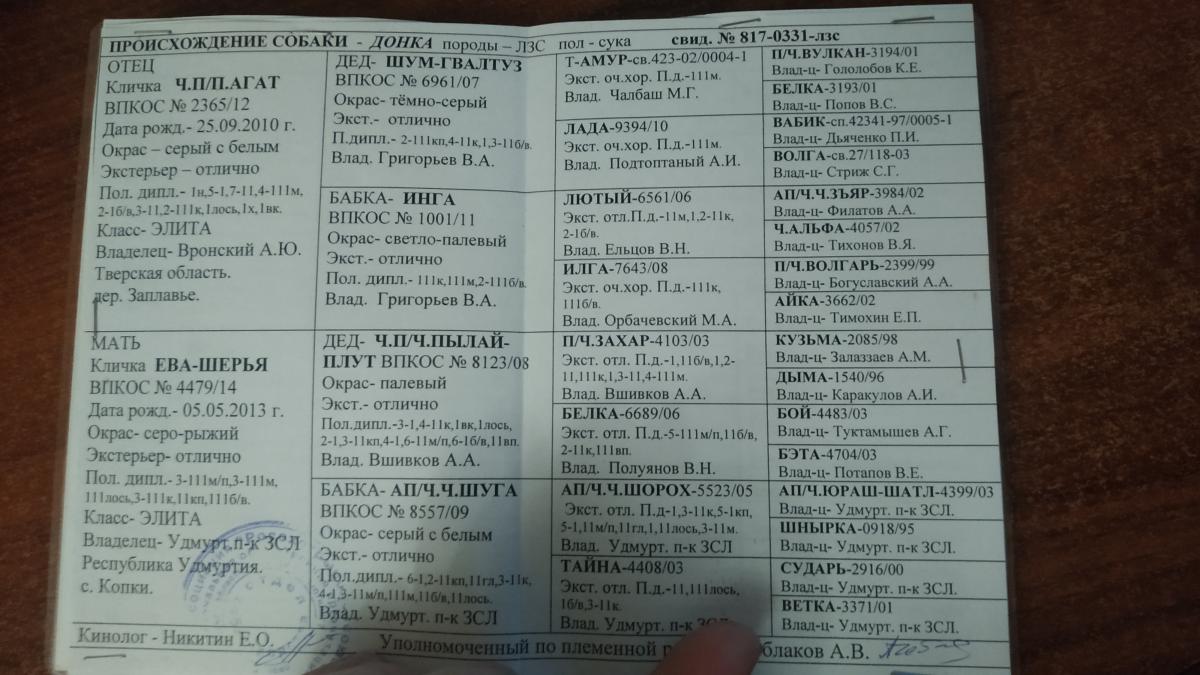 ПРОИСХОЖДЕНИЕ СОБАКИ - ДОНКА породы – ЛЗС пол - сука свид. № 817-0331-лзс
ОТЕЦ
Кличка Ч.П/П.АГАТ
ВПКОС № 2365/12
Дата рожд.- 25.09.2010 г.
Окрас – серый с белым
Экстерьер – отлично
Пол. дипл.- 1н,5-1,7-11,4-111м,
2-1б/в,3-11,2-11к,1лось,1х,1вк.
Класс- ЭЛИТА
Владелец- Вронский А.Ю.
Тверская область.
дер. Заплавье.
МАТЬ
Кличка ЕВА-ШЕРЬЯ
ВПКОС № 4479/14
Дата рожд.- 05.05.2013 г.
Окрас- серо-рыжий
Экстерьер- отлично
Пол. дипл.- 3-111м/п,3-111м,
111лось,3-111к,11кп,111б/в.
Класс- ЭЛИТА
Владелец- Удмурт.п-к ЗСЛ
Республика Удмуртия.
с. Копки.
ДЕД- ШУМ-ГВАЛТУЗ
ВПКОС № 6961/07
Окрас- тёмно-серый
Экст.- отлично
П.дипл.- 2-111кп,4-11к,1,3-11б/в.
Влад. Григорьев В.А.
БАБКА- ИНГА
ВПКОС № 1001/11
Окрас- светло-палевый
Экст.- отлично
Пол. дипл.- 111к,111м,2-111б/в.
Влад. Григорьев В.А.
ДЕД- Ч.П/Ч.ПЫЛАЙ-
ПЛУТ ВПКОС № 8123/08
Окрас- палевый
Экст.- отлично
Пол.дипл.-3-1,4-11к,1вк,1лось,
2-1,3-11кп,4-1,6-11м/п,6-1б/в,11вп.
Влад. Вшивков А.А.
БАБКА- АП/Ч.Ч.ШУГА
ВПКОС № 8557/09
Окрас- серый с белым
Экст.- отлично
Пол.дипл.- 6-1,2-11кп,11гл,3-11к,
4-1,3-11м/п,111м,11б/в,11лось.
Влад. Удмурт. п-к ЗСЛ
Т-АМУР-св.423-02/0004-1
Экст. оч.хор. П.д.-111м.
Влад. Чалбаш М.Г.
ЛАДА-9394/10
Экст. оч.хор. П.д.-111м.
Влад. Подтоптаный А.И.
ЛЮТЫЙ-6561/06
Экст. отл.П.д.-11м,1,2-11к,
2-1б/в.
Влад. Ельцов В.Н.
ИЛГА-7643/08
Экст. оч.хор. П.д.-111к,
111б/в.
Влад. Орбачевский М.А.
П/Ч.ЗАХАР-4103/03
Экст. отл. П.д.-1,11б/в,1,2-
11,111к,1,3-11,4-111м.
Влад. Вшивков А.А.
БЕЛКА-6689/06
Экст. отл. П.д.-5-111м/п,11б/в,
2-11к,111вп.
Влад. Полуянов В.Н.
АП/Ч.Ч.ШОРОХ-5523/05
Экст. отл. П.д-1,3-11к,5-1кп,
5-1,11м/п,11гл,1,11лось,3-11м.
Влад. Удмурт. п-к ЗСЛ
ТАЙНА-4408/03
Экст. отл. П.д.-11,111лось,
1б/в,3-11к.
Влад. Удмурт. п-к ЗСЛ
П/Ч.ВУЛКАН-3194/01
Влад-ц- Гололобов К.Е.
БЕЛКА-3193/01
Влад-ц- Попов В.С.
ВАБИК-сп.42341-97/0005-1
Влад-ц- Дьяченко П.И.
ВОЛГА-св.27/118-03
Влад-ц- Стриж С.Г.
АП/Ч.Ч.ЗЪЯР-3984/02
Влад-ц- Филатов А.А.
Ч.АЛЬФА-4057/02
Влад-ц- Тихонов В.Я.
П/Ч.ВОЛГАРЬ-2399/99
Влад-ц- Богуславский А.А.
АЙКА-3662/02
Влад-ц- Тимохин Е.П.
КУЗЬМА-2085/98
Влад-ц- Залаззаев А.М.
ДЫМА-1540/96
Влад-ц- Каракулов А.И.
БОЙ-4483/03
Влад-ц- Туктамышев А.Г.
БЭТА-4704/03
Влад-ц- Потапов В.Е.
АП/Ч.ЮРАШ-ШАТЛ-4399/03
Влад-ц- Удмурт. п-к ЗСЛ.
ШНЫРКА-0918/95
Влад-ц- Удмурт. п-к ЗСЛ.
СУДАРЬ-2916/00
Влад-ц- Удмурт. п-к ЗСЛ.
ВЕТКА-3371/01
Влад-ц- Удмурт. п-к ЗСЛ.
Кинолог - Никитин Е.О. Уполномоченный по племенной А.В.